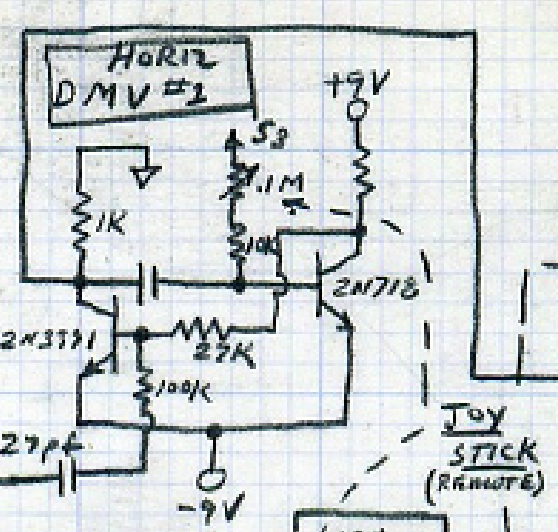 HORIZ
DMV #2
+9V
S3
.1M
1K
10K
2N718
2N3391
27K
100K
27pf
-9V
JOY
STICK
(REMOTE)